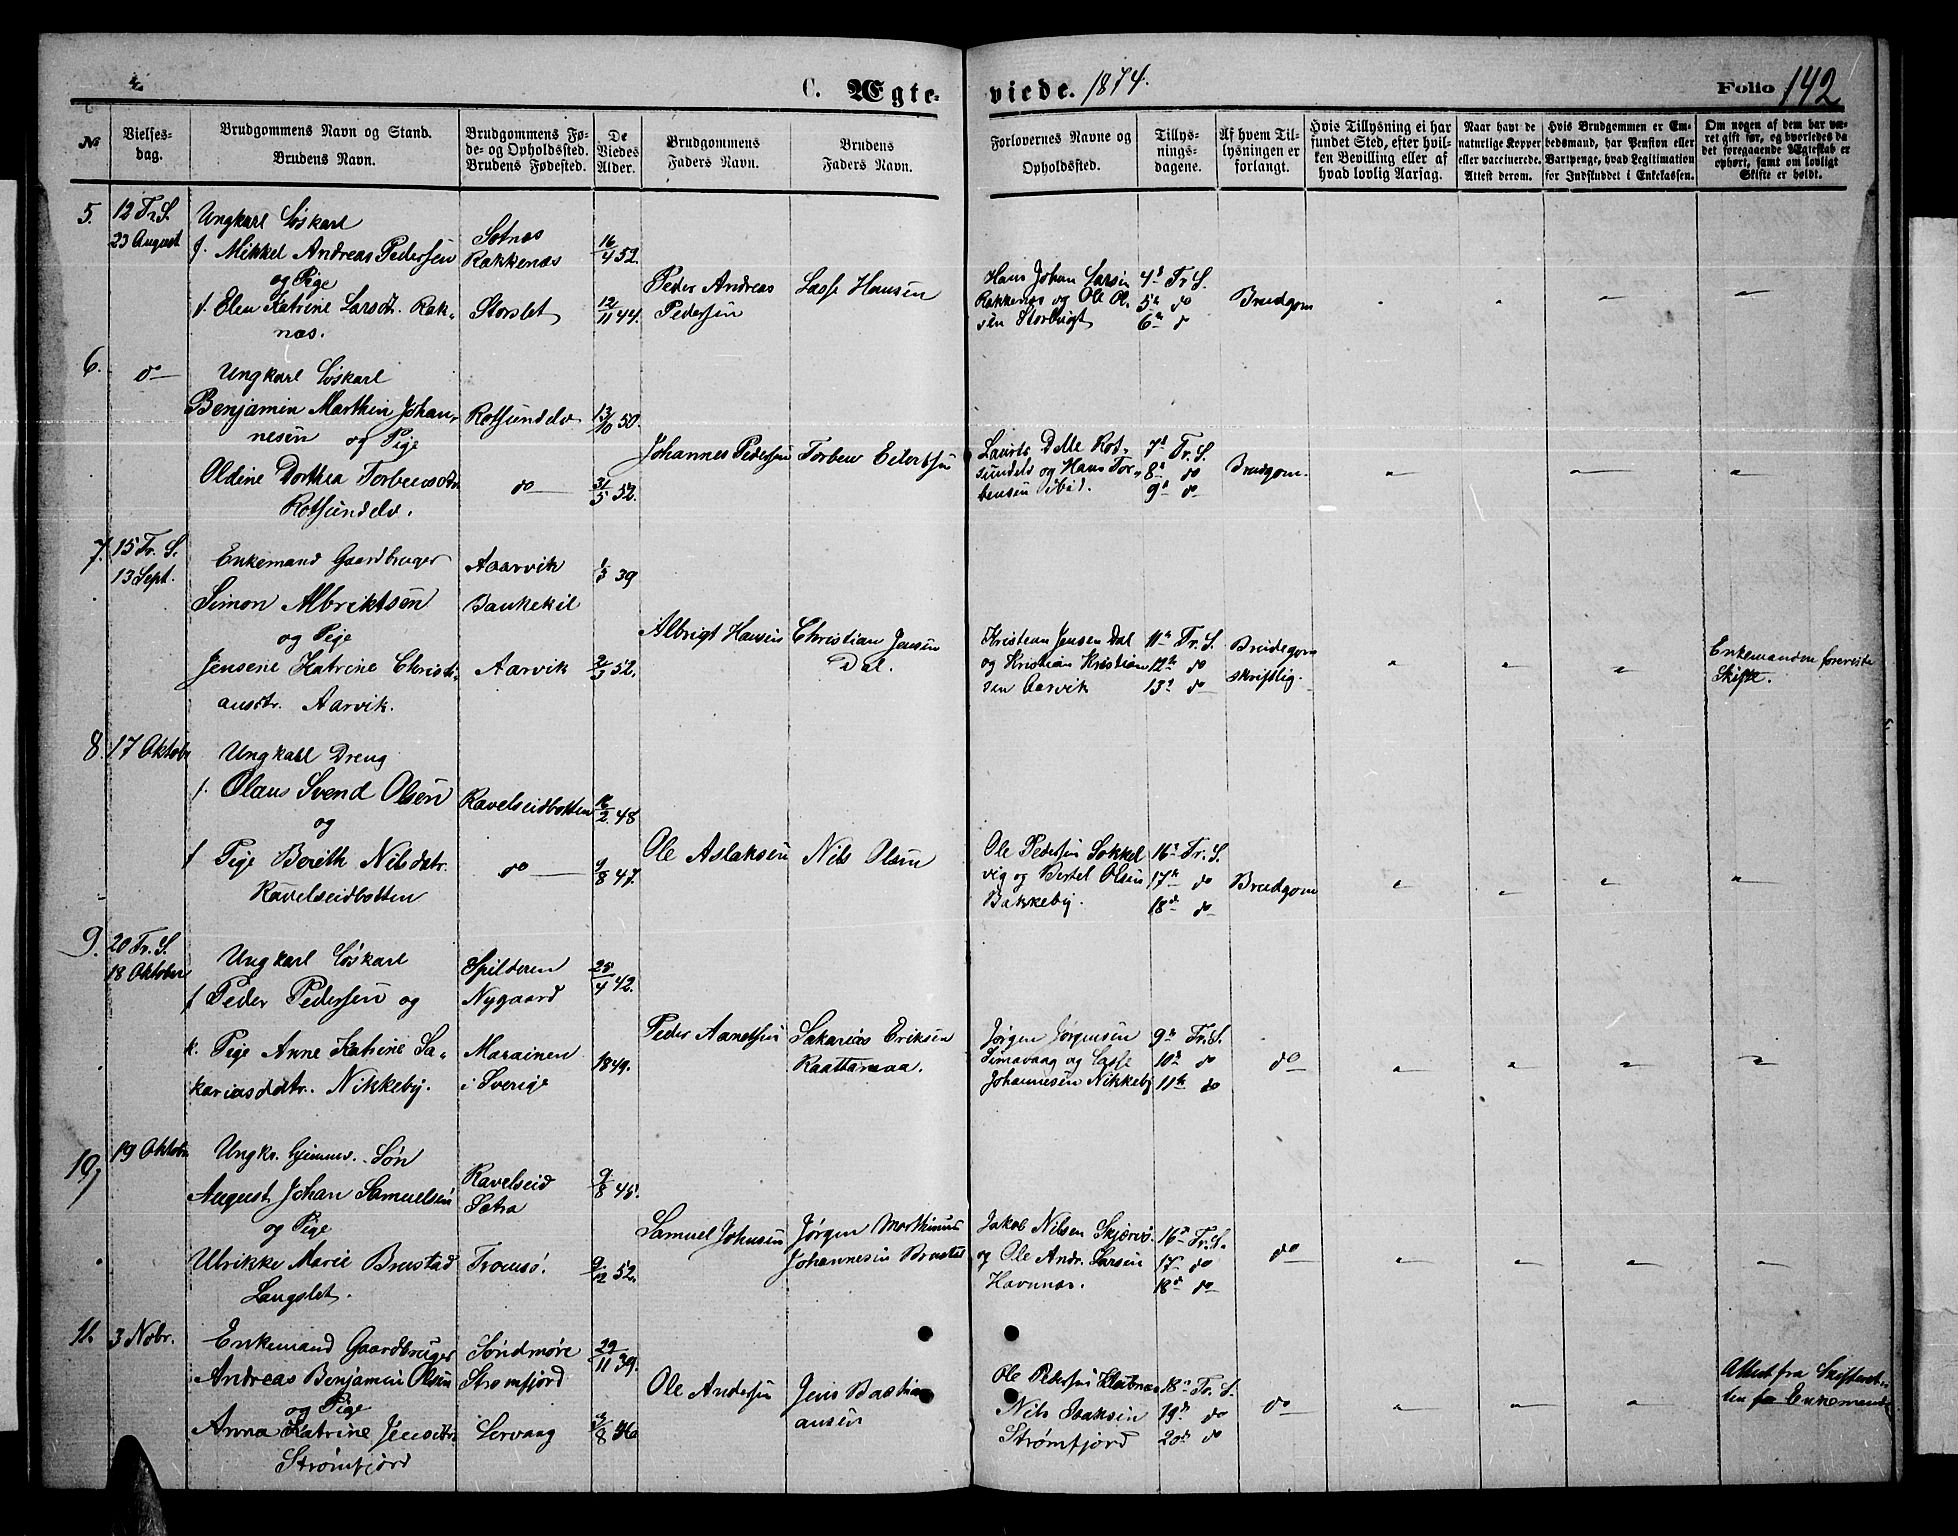 C. Ægte-
viede. 1874.
Folio 142
№
Vielses-
dag.
Brudgommens Navn og Stand.
Brudens Navn.
Brudgommens Fø-
de- og Opholdsted.
Brudens Fødested.
De
Viedes
Alder.
Brudgommens
Faders Navn.
Brudens
Faders Navn.
Forlovernes Navne og
Opholdssted.
Tillys-
nings-
dagene.
Af hvem Til-
lysningen er
forlangt.
Hvis Tillysning ei har
fundet Sted, efter hvil-
ken Bevilling eller af
hvad lovlig Aarsag.
Naar havt de
naturlige Kopper
eller vaccinerede.
Attest derom.
Hvis Brudgommen er Em-
bedsmand, har Pension eller
Vartpenge, hvad Legitimation
for Indskuddet i Enkekassen.
Om nogen af dem har væ-
ret gift før, og hvorledes da
det foregaaende Ægteskab er
ophørt, samt om lovligt
Skifte er holdt.
5.
12 Tr. S.
23 August
Ungkarl Løskarl
f. Mikkel Andreas Pedersen
og Pige
f. Elen Katrine Larsdt. Rak-
næs.
Sotnæs
Rakkenæs
Storslet
16/4 52.
12/11 44.
Peder Andreas
Pedersen
Lasse Hansen
Hans Johan Larsen
Rakkenæs og Ole Ol-
sen Storbugt
4d Tr. S.
5te do
6te do
Brudgom
6.
do
Ungkarl Løskarl
Benjamin Marthin Johan-
nesen og Pige
Oldine Dorthea Torbensdtr
Rotsundelv.
Rotsundelv
do
13/10 50.
31/5 52.
Johannes Pedersen
Torben Eilertsen
Laurits Dalle Rot-
sundelv og Hans Tor-
bensen ibid.
7d Tr. S.
8d do
9d do
Brudgom.
7.
15 Tr. S.
13 Sept.
Enkemand Gaardbruger
Simon Albriktsen
og Pige
Jensene Katrine Christi-
ansdtr. Aarvik.
Aaarvik
Baukekil
Aarvik
39
52.
Albrigt Hansen
Christian Jensen
Dal.
Kristian Jensen Dal
og Kristian Kristian-
sen Aarvik
11te Tr. S.
12te do
13d do
Brudegom
skriftlig.
Enkemanden foreviste
Skifte.
8.
17 Oktobr
Ungkarl Dreng
f. Olaus Svend Olsen
og
f Pige Berith Nilsdatr.
Ravelseidbotten
Ravelseidbotten
do
16/2 48
9/8 47.
Ole Aslaksen
Nils Olsen
Ole Pedersen Sokkel
vig og Bertel Olsen
Bakkeby.
16d Tr. S.
17te do
18de do
Brudgom
9.
20 Tr. S.
18 Oktober
Ungkarl Løskarl
f Peder Pedersen og
k. Pige Anne Katrine Sa-
kariasddtr. Nikkeby.
Spilderen
Nygaard
Marainen
i Sverige
25/4 42.
1849.
Peder Aanetsen
Sakarias Eriksen
Raattamaa.
Jørgen Jørgensen
Simavaag og Lasse
Johannesen Nikkeby
9de Tr. S.
10de do
11te do
do
10
19 Oktobr
Ungk. hjemmev. Søn
August Johan Samuelsen
og Pige
Ulrikke Marie Brustad
Langslet.
Ravelseid
Sotra
Tromsø.
9/8 45.
9/12 52.
Samuel Johnsen
Jørgen Morthinus
Johannesen Brustad
Jakob Nilsen Skjærvø.
og Ole Andr. Larsen
Havnnæs.
16d Tr. S.
17 do
18d do
do
11.
3 Nobr.
Enkemand Gaardbruger
Andreas Benjamin Olsen
og Pige
Anna Katrine Jensdtr.
Strømfjord
Søndmøre
Strømfjord
Lervaag
29/11 39.
3/8 46
Ole Andersen
Jens Basti
ansen
Ole Pedersen Klubnæs
Nils Isaksen
Strømfjord
18d Tr. S.
19de do
20de do
do
Attest fra Skifteret-
ten fra Enkemand